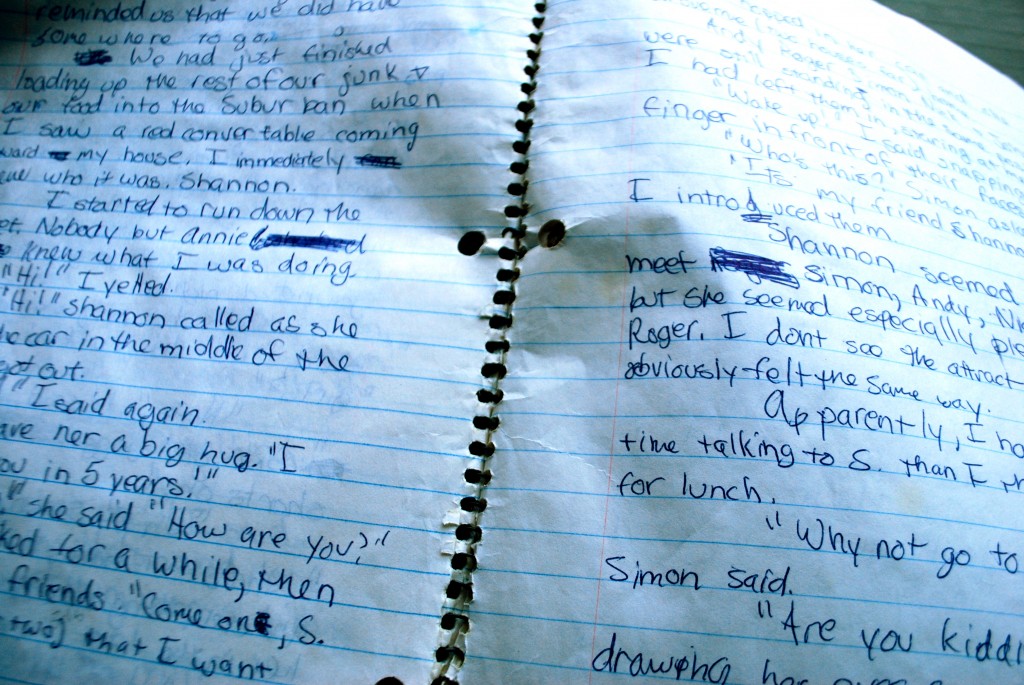 reminded us that we did have
some where to go.
We had just finished
loading up the rest of our junk &
our food into the Subur ban when
I saw a red conver table coming
ward my house. I immediately
who it was. Shannon.
I started to run down the
Nobody but annie
knew what I was doing
"Hi!" I yelled.
"Hi!" shannon called as she
car in the middle of the
got out.
" I said again.
ave her a big hug. "I
ou in 5 years!"
" she said "How are you?"
ked for a while, then
friends. "Come on, S.
two) that I want
were still standing
I had left them, staring at
"Wake up!" I said snapping
finger in front of their faces
"Who's this?" Simon aske
"Its my friend Shanno
I introduced them.
Shannon seemed
meet Simon, Andy, N
but she seemed especially ple
Roger. I dont see the attract
obviously felt the same way.
Apparently, I ha
time talking to S. than I th
for lunch.
"Why not go to
Simon said.
"Are you kiddi